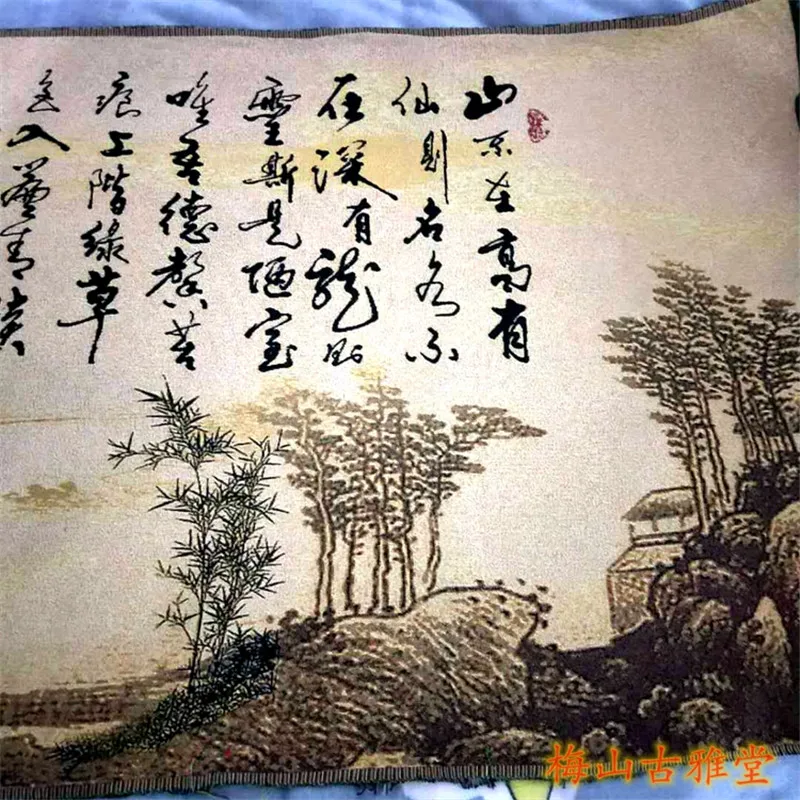 山不在高有
仙則名水不
在深有龍則
靈斯是陋室
唯吾德馨苔
痕上階綠草
色入簾青談
梅山古雅堂